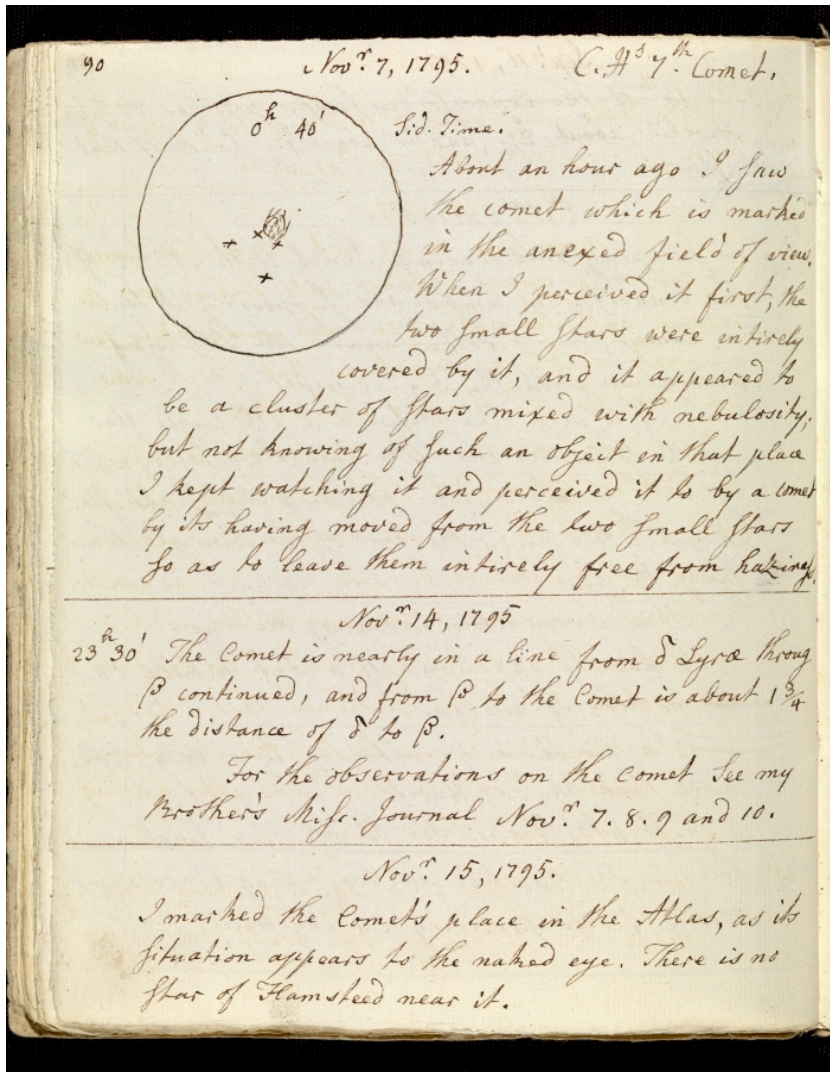 90 Nov.r 7, 1795. C. H.s 7.th Comet.
0h 40' Sid. Time.
About an hour ago I saw
the comet which is marked
in the anexed field of view.
When I perceived it first, the
two small stars were intirely
covered by it, and it appeared to
be a cluster of stars mixed with nebulosity;
but not knowing of such an object in that place
I kept watching it and perceived it to by a comet
by its having moved from the two small stars
so as to leave them intirely free from haziness.
Nov.r 14, 1795
23h 30' The Comet is nearly in a line from δ Lyræ throug
β continued, and from β to the Comet is about 1 3/4
the distance of δ to β.
For the observations on the Comet see my
Brother's Misc. Journal Nov.r 7. 8. 9 and 10.
Nov.r 15, 1795.
I marked the Comet's place in the Atlas, as its
situation appears to the naked eye. There is no
star of Flamsteed near it.